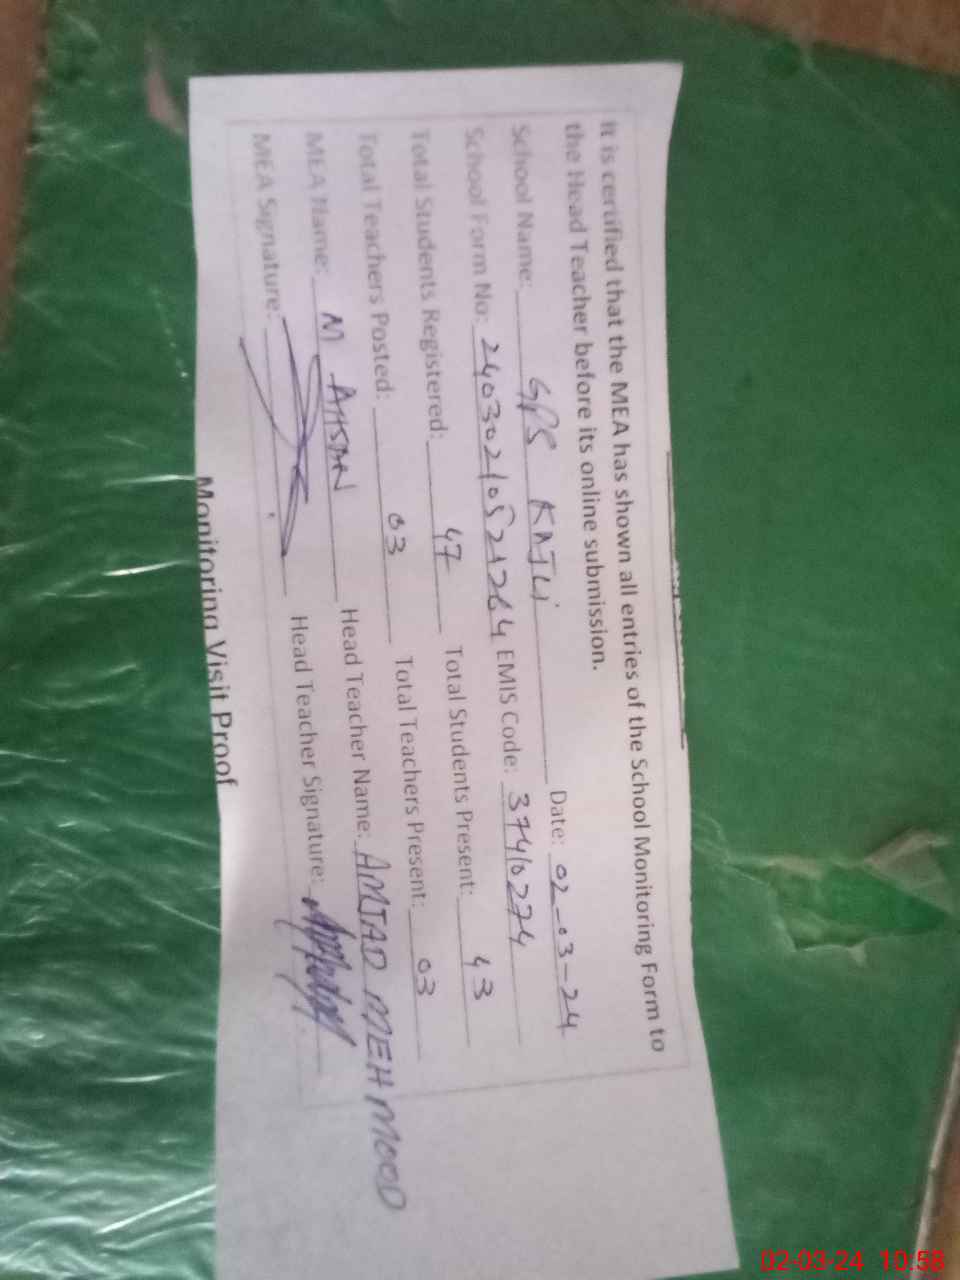 It is certified that the MEA has shown all entries of the School Monitoring Form to
the Head Teacher before its online submission.
School Name: GPS KAJLI Date: 02-03-24
School Form No: 24030210521264 EMIS Code: 37410274
Total Students Registered: 47 Total Students Present: 43
Total Teachers Posted: 03 Total Teachers Present: 03
MEA Name: M AHSAN Head Teacher Name: AMJAD MEHMOOD
MEA Signature: Head Teacher Signature:
Monitoring Visit Proof
02-03-24 10:58